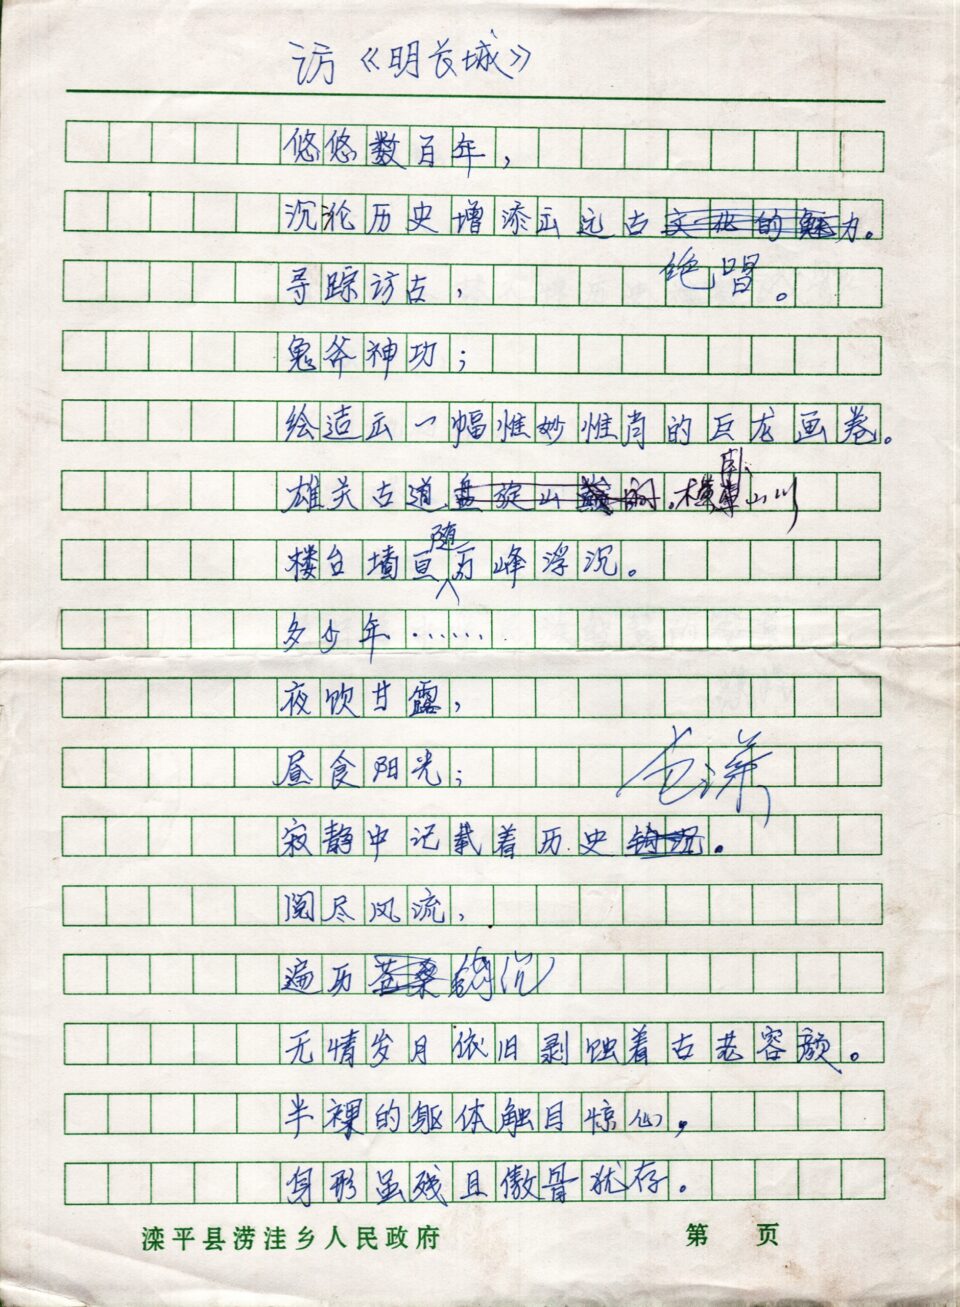 访《明长城》
悠悠数百年，
沉沦历史增添云远古文化的魅力。
绝唱。
寻踪访古，
鬼斧神功；
绘造云一幅惟妙惟肖的巨龙画卷。
卧
雄关古道盘旋山 横 山川
随
楼台墙亘万峰浮沉。
多少年……
夜饮甘露，
昼食阳光；
苍漭
寂静中记载着历史钩沉。
阅尽风流，
遍历苍桑钩沉
无情岁月依旧剥蚀着古老容颜。
半裸的躯体触目惊心，
身形虽残且傲骨犹存。
滦平县涝洼乡人民政府 第 页